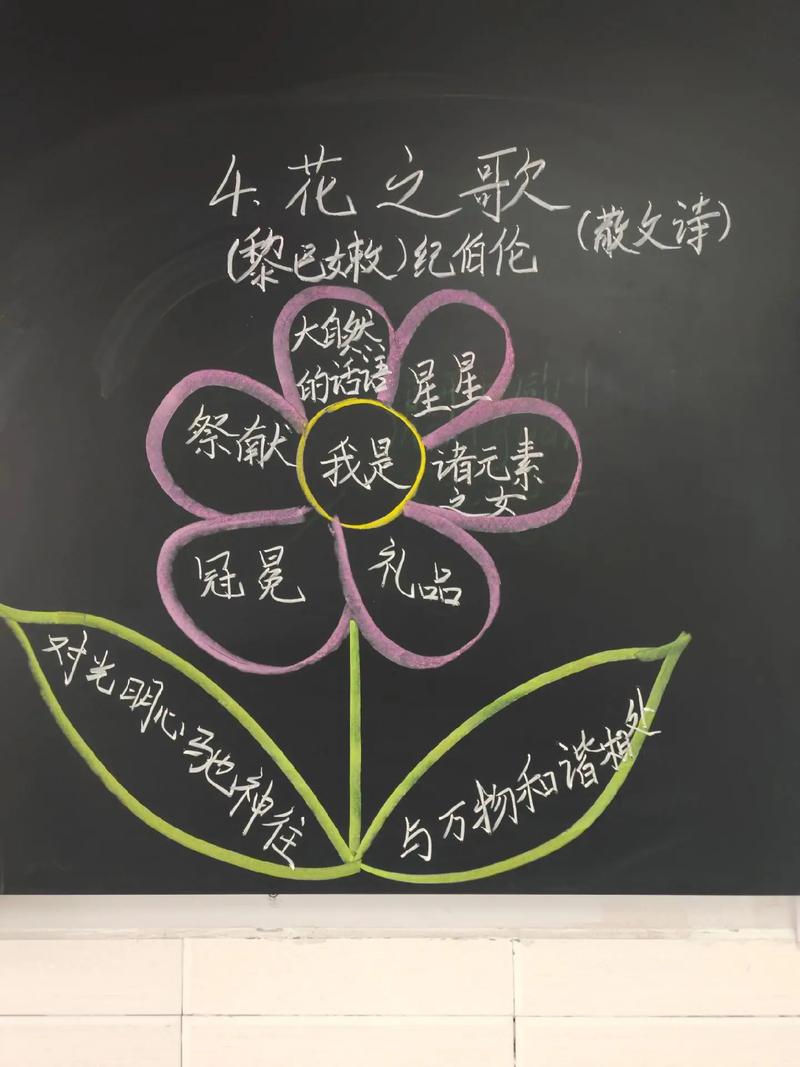 4、花之歌
(散文诗)
(黎巴嫩)纪伯伦
大自然
的话语
星星
祭献
我是
诸元素
之女
冠冕
礼品
对光明心驰神往
与万物和谐相处